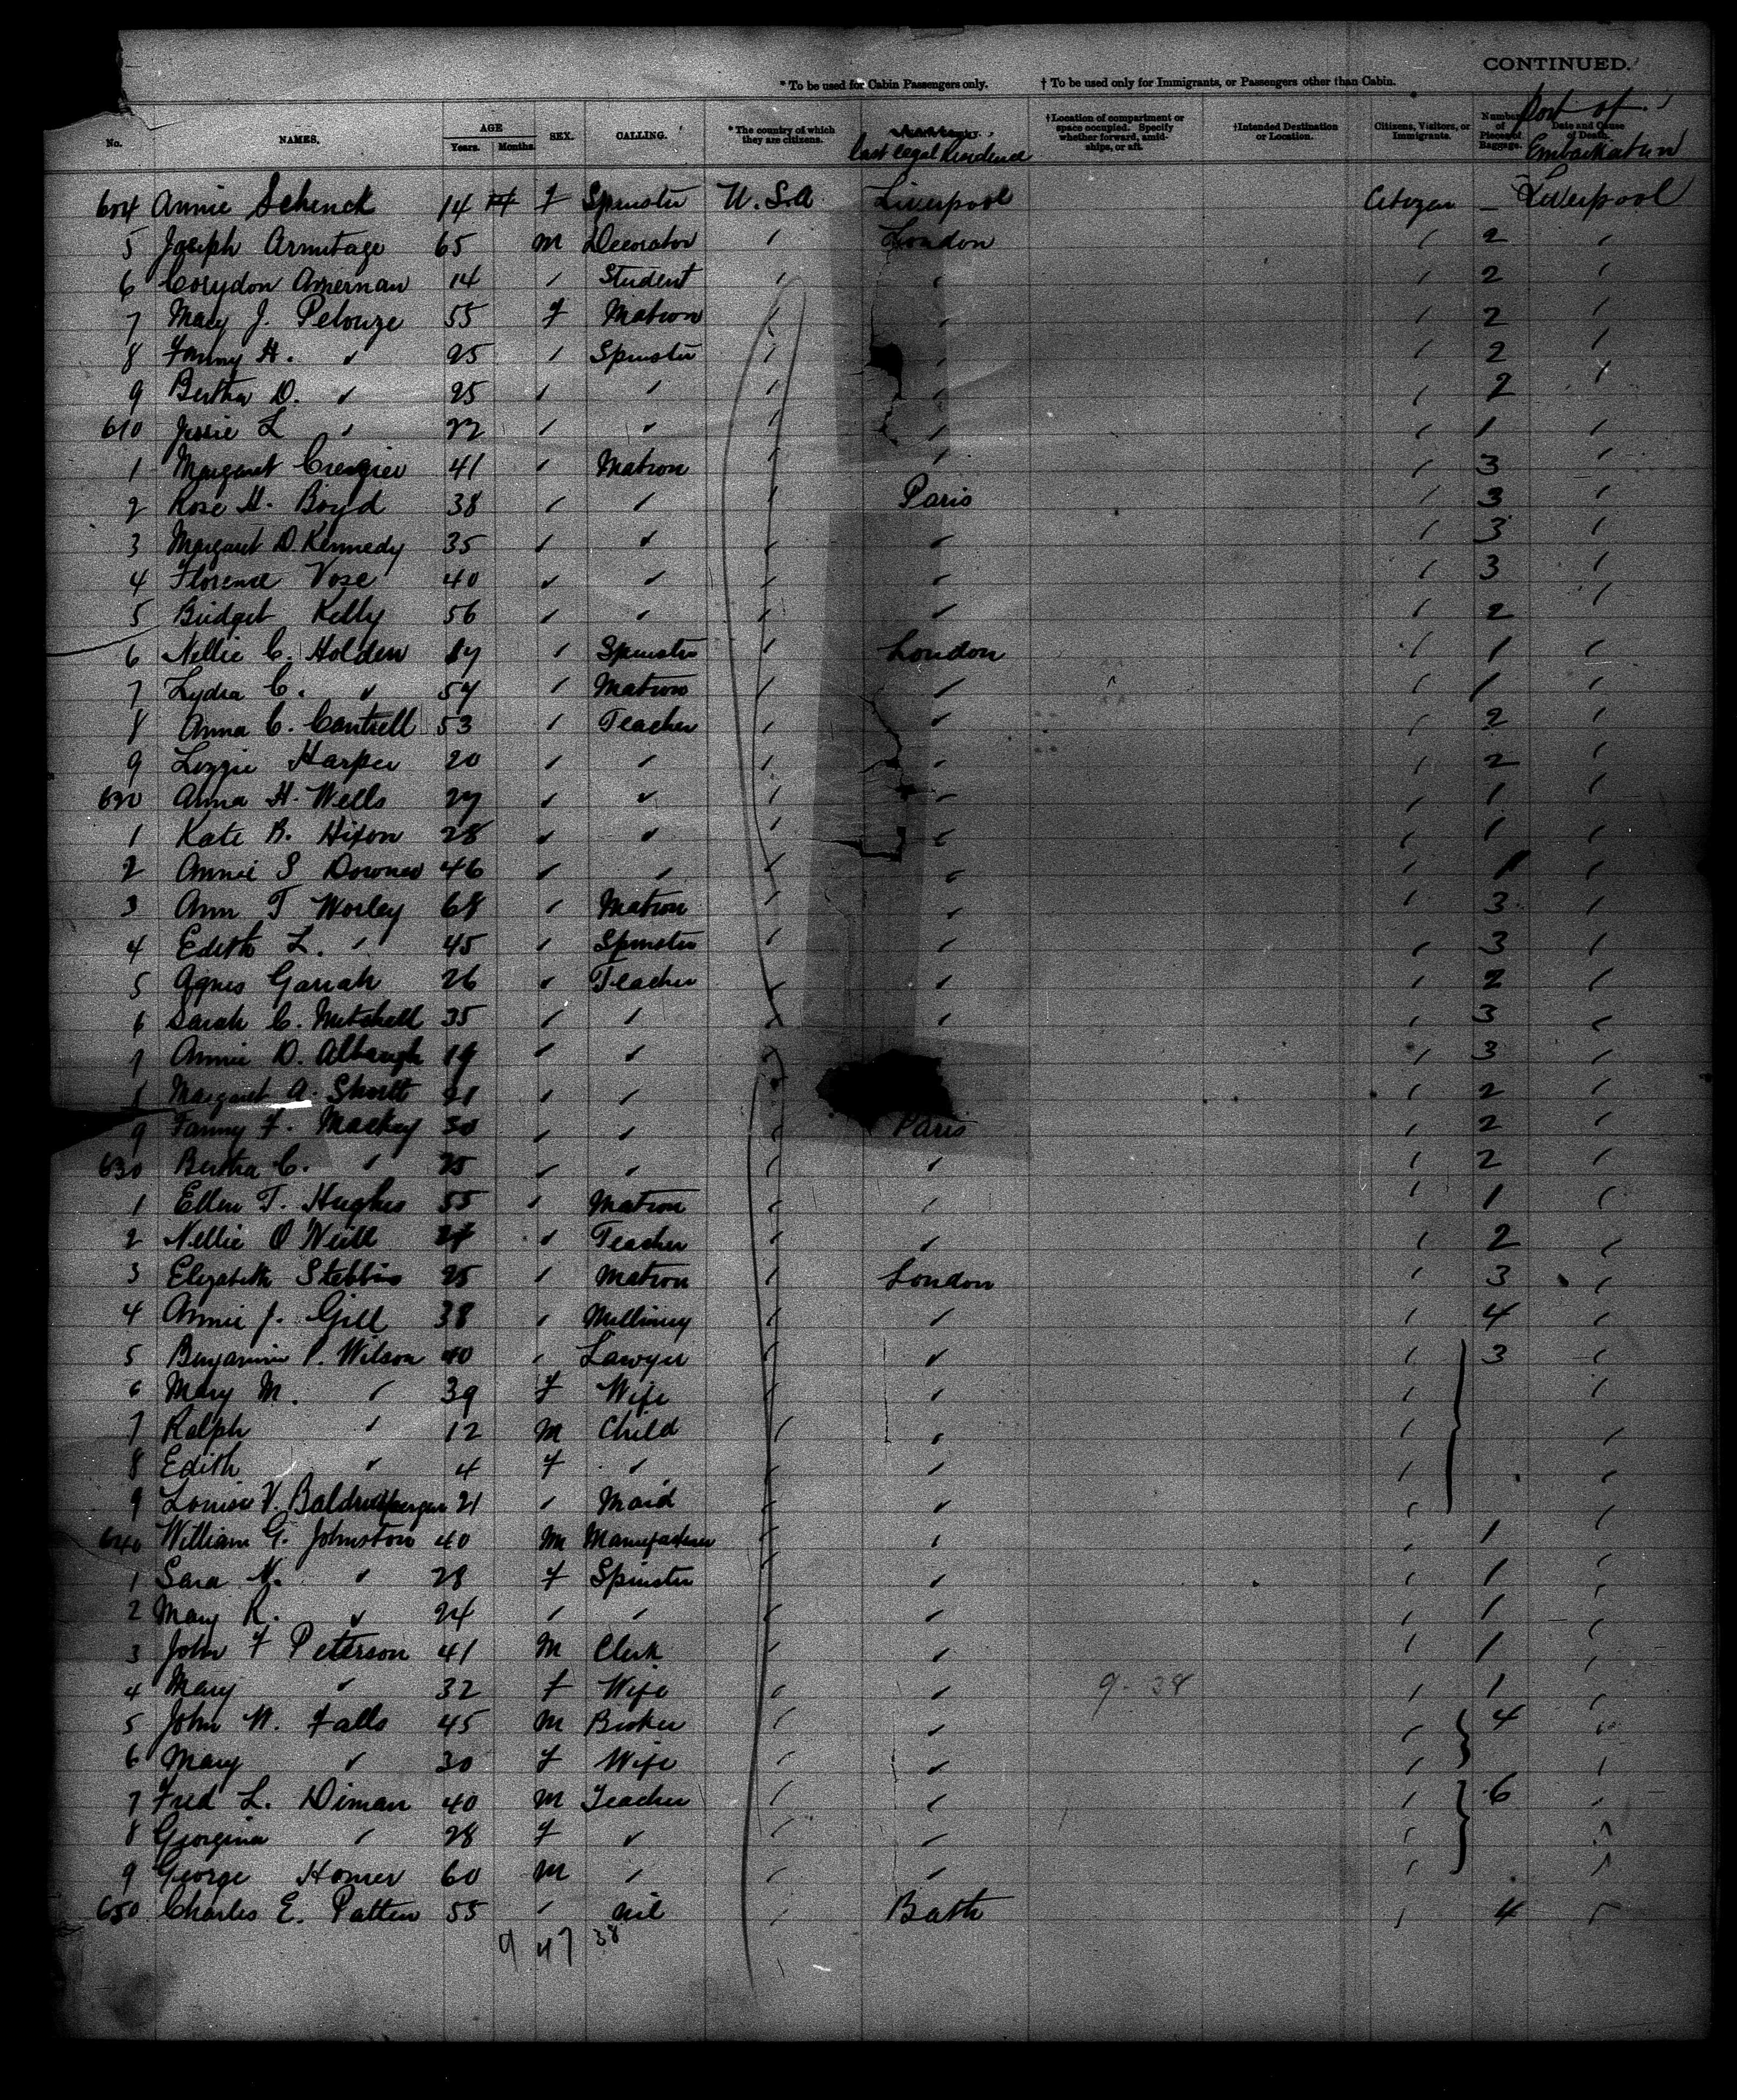 CONTINUED.
* To be used for Cabin Passengers only. † To be used only for Immigrants, or Passengers other than Cabin.
No. NAMES. AGE Years. Months. SEX. CALLING. * The country of which they are citizens. Last legal Residence †Location of compartment or space occupied. Specify whether forward, amidships, or aft. †Intended Destination or Location. Citizens, Visitors, or Immigrants. Number of Pieces of Baggage. Date and Cause of Death. Port of Embarkation
604 Annie Schenck 14 f Spinster U.S.A Liverpool Citizen – Liverpool
5 Joseph Armitage 65 M Decorator ′ London ′ 2 ′
6 Corydon Amerman 14 ′ Student ′ ′ ′ 2 ′
7 Mary J. Pelouze 55 f Matron ′ ′ ′ 2 ′
8 Fanny H. ′ 25 ′ Spinster ′ ′ ′ 2 ′
9 Bertha D. ′ 25 ′ ′ ′ ′ ′ 2 ′
610 Jessie L ′ 22 ′ ′ ′ ′ ′ 1 ′
1 Margaret 41 ′ Matron ′ ′ ′ 3 ′
2 Rose H. Boyd 38 ′ ′ ′ Paris ′ 3 ′
3 Margaret D. Kennedy 35 ′ ′ ′ ′ ′ 3 ′
4 Florence Vose 40 ′ ′ ′ ′ ′ 3 ′
5 Bridget Kelly 56 ′ ′ ′ ′ ′ 2 ′
6 Nellie C. Holden ′ Spinster ′ London ′ 1 ′
7 Lydia C. ′ 54 ′ Matron ′ ′ ′ 1 ′
8 Anna C. Cantrell 53 ′ Teacher ′ ′ ′ 2 ′
9 Lizzie Harper 20 ′ ′ ′ ′ ′ 2 ′
620 Anna H. Wells 27 ′ ′ ′ ′ ′ 1 ′
1 Kate B. Hixon 28 ′ ′ ′ ′ ′ 1 ′
2 Annie S Downer 46 ′ ′ ′ ′ ′ 1 ′
3 Ann T Worley 68 ′ Matron ′ ′ ′ 3 ′
4 Edith L. ′ 45 ′ Spinster ′ ′ ′ 3 ′
5 Agnes 26 ′ Teacher ′ ′ ′ 2 ′
6 Sarah C. Mitchell 35 ′ ′ ′ ′ ′ 3 ′
7 Annie D. Albaugh 19 ′ ′ ′ ′ 3 ′
8 Margaret A. 21 ′ ′ ′ ′ 2 ′
9 Fanny F. Mackey 30 ′ ′ ′ Paris ′ 2 ′
630 Bertha C. ′ 25 ′ ′ ′ ′ ′ 2 ′
1 Ellen T. Hughes 55 ′ Matron ′ ′ ′ 1 ′
2 Nellie O'Neill ′ Teacher ′ ′ ′ 2 ′
3 Elizabeth Stebbins 25 ′ Matron ′ London ′ 3 ′
4 Annie J. Gill 38 ′ Millinery ′ ′ ′ 4 ′
5 Benjamin P. Wilson 40 ′ Lawyer ′ ′ ′ 3 ′
6 Mary M. ′ 39 f Wife ′ ′ ′ ′
7 Ralph ′ 12 M Child ′ ′ ′ ′
8 Edith ′ 4 f ′ ′ ′ ′ ′
9 Louise V. 21 ′ Maid ′ ′ ′ ′
640 William G. Johnston 40 M Manufacturer ′ ′ ′ 1 ′
1 Sara N. ′ 28 f Spinster ′ ′ ′ 1 ′
2 Mary R. ′ 24 ′ ′ ′ ′ ′ 1 ′
3 John F Peterson 41 M Clerk ′ ′ ′ 1 ′
4 Mary ′ 32 f Wife ′ ′ 9-38 ′ 1 ′
5 John W. Falls 45 M Broker ′ ′ ′ 4 ′
6 Mary ′ 30 f Wife ′ ′ ′ ′
7 Fred L. Diman 40 M Teacher ′ ′ ′ 6 ′
8 Georgina ′ 28 f ′ ′ ′ ′ ′
9 George Homer 60 M ′ ′ ′ ′ ′
650 Charles E. Patten 55 ′ nil ′ Bath ′ 4 ′
9 47 38